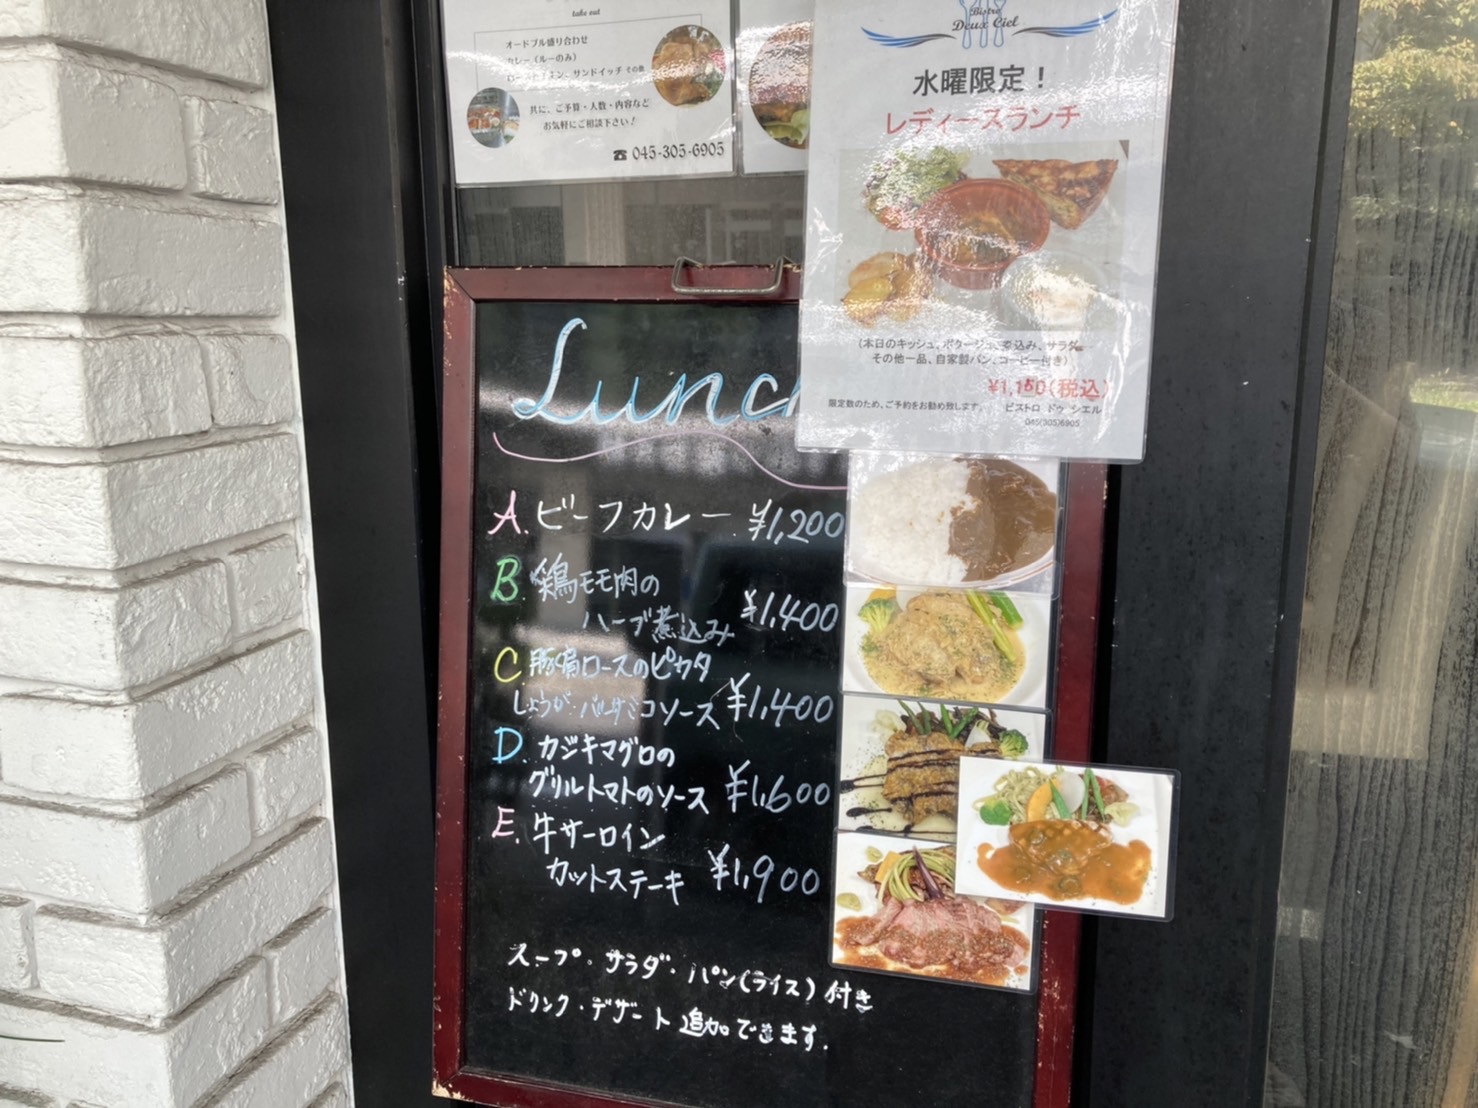 take out
オードブル盛り合わせ
カレー（ルーのみ）
サンドイッチ その他
共に、ご予算・人数・内容など
お気軽にご相談下さい！
☎ 045-305-6905
Bistro
Deux Ciel
水曜限定！
レディースランチ
（本日のキッシュ、ポタージュ、煮込み、サラダ
その他一品、自家製パン、コーヒー付き）
¥1,150（税込）
限定数のため、ご予約をお勧め致します。 ビストロ ドゥ シエル
045(305)6905
Lunch
A. ビーフカレー ¥1,200
B. 鶏モモ肉の
ハーブ煮込み ¥1,400
C. 豚肩ロースのピカタ
しょうが・バルサミコソース ¥1,400
D. カジキマグロの
グリルトマトのソース ¥1,600
E. 牛サーロイン
カットステーキ ¥1,900
スープ・サラダ・パン(ライス)付き
ドリンク・デザート追加できます.